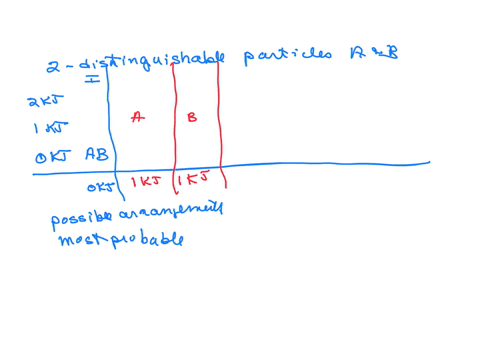 2-distinguishable particles A & B
I
2 KJ
1 KJ A B
0 KJ AB
0KJ 1 KJ 1 KJ
possible arrangements
most probable